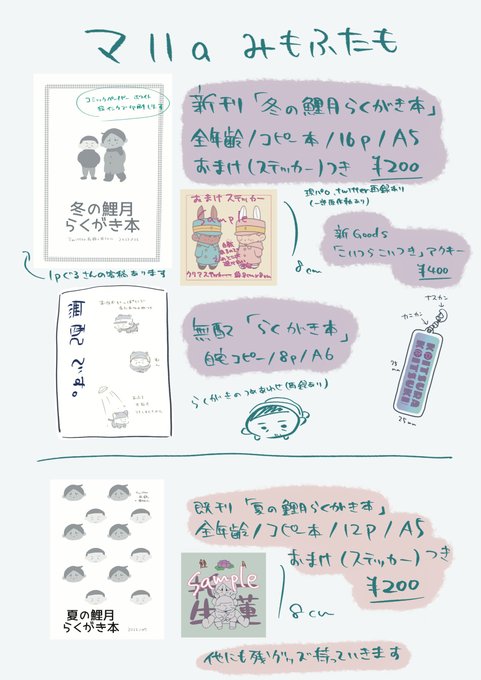 マ11a みもふたも
コミックカバーパール ホワイト
新刊「冬の鯉月らくがき本」
全年齢/コピー本/16p/A5
おまけ(ステッカー)つき ¥200
冬の鯉月
らくがき本
1pぐるさんの寄稿あります
おまけステッカー
sample
クリアステッカー
8cm
現パロ、twitter再録あり
新Goods
「こいつらこいつき」アクキー
¥400
ナスカン
カニカン
KOITSURA
KOITSUKI
25mm
無配です。
無配「らくがき本」
自宅コピー/8p/A6
らくがきのつめあわせ(再録あり)
既刊「夏の鯉月らくがき本」
全年齢/コピー本/12p/A5
おまけ(ステッカー)つき
¥200
夏の鯉月
らくがき本
sample
8cm
他にも残グッズ持っていきます